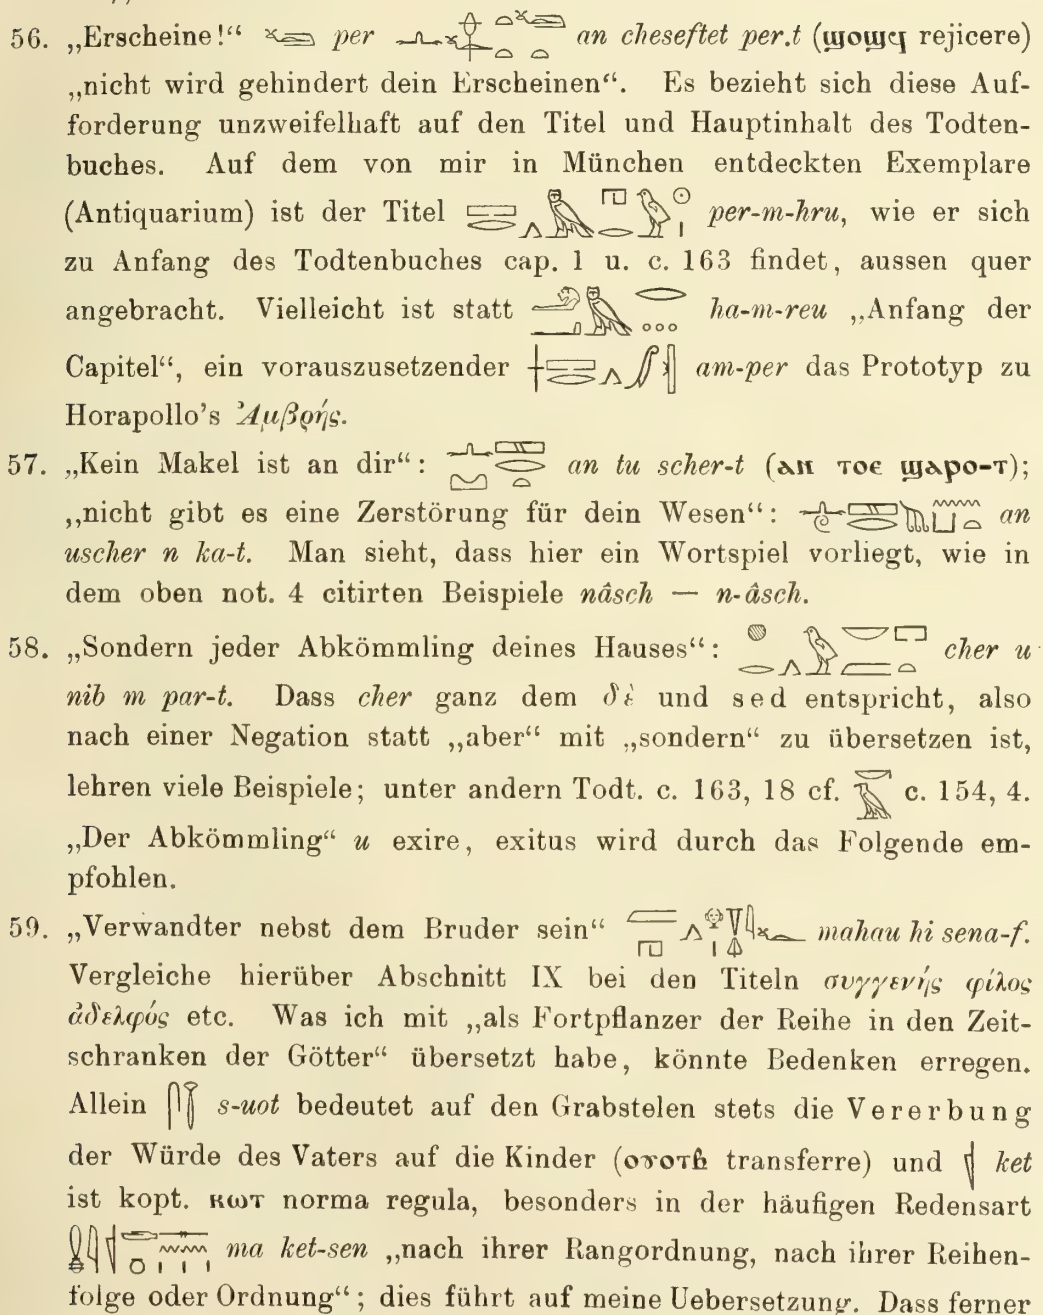 56. „Erscheine!“ per an cheseftet per.t (ϣⲟϣϥ rejicere)
„nicht wird gehindert dein Erscheinen“. Es bezieht sich diese Auf-
forderung unzweifelhaft auf den Titel und Hauptinhalt des Todten-
buches. Auf dem von mir in München entdeckten Exemplare
(Antiquarium) ist der Titel per-m-hru, wie er sich
zu Anfang des Todtenbuches cap. 1 u. c. 163 findet, aussen quer
angebracht. Vielleicht ist statt ha-m-reu „Anfang der
Capitel“, ein vorauszusetzender am-per das Prototyp zu
Horapollo's Ἀμβρής.
57. „Kein Makel ist an dir“: an tu scher-t (ⲁⲛ ⲧⲟⲉ ϣⲁⲣⲟ-ⲧ);
„nicht gibt es eine Zerstörung für dein Wesen“: an
uscher n ka-t. Man sieht, dass hier ein Wortspiel vorliegt, wie in
dem oben not. 4 citirten Beispiele nâsch — n-âsch.
58. „Sondern jeder Abkömmling deines Hauses“: cher u
nib m par-t. Dass cher ganz dem δὲ und sed entspricht, also
nach einer Negation statt „aber“ mit „sondern“ zu übersetzen ist,
lehren viele Beispiele; unter andern Todt. c. 163, 18 cf. c. 154, 4.
„Der Abkömmling“ u exire, exitus wird durch das Folgende em-
pfohlen.
59. „Verwandter nebst dem Bruder sein“ mahau hi sena-f.
Vergleiche hierüber Abschnitt IX bei den Titeln συγγενής φίλος
ἀδελφός etc. Was ich mit „als Fortpflanzer der Reihe in den Zeit-
schranken der Götter“ übersetzt habe, könnte Bedenken erregen.
Allein s-uot bedeutet auf den Grabstelen stets die Vererbung
der Würde des Vaters auf die Kinder (ⲟⲩⲟⲧⲃ transferre) und ket
ist kopt. ⲕⲱⲧ norma regula, besonders in der häufigen Redensart
ma ket-sen „nach ihrer Rangordnung, nach ihrer Reihen-
folge oder Ordnung“; dies führt auf meine Uebersetzung. Dass ferner